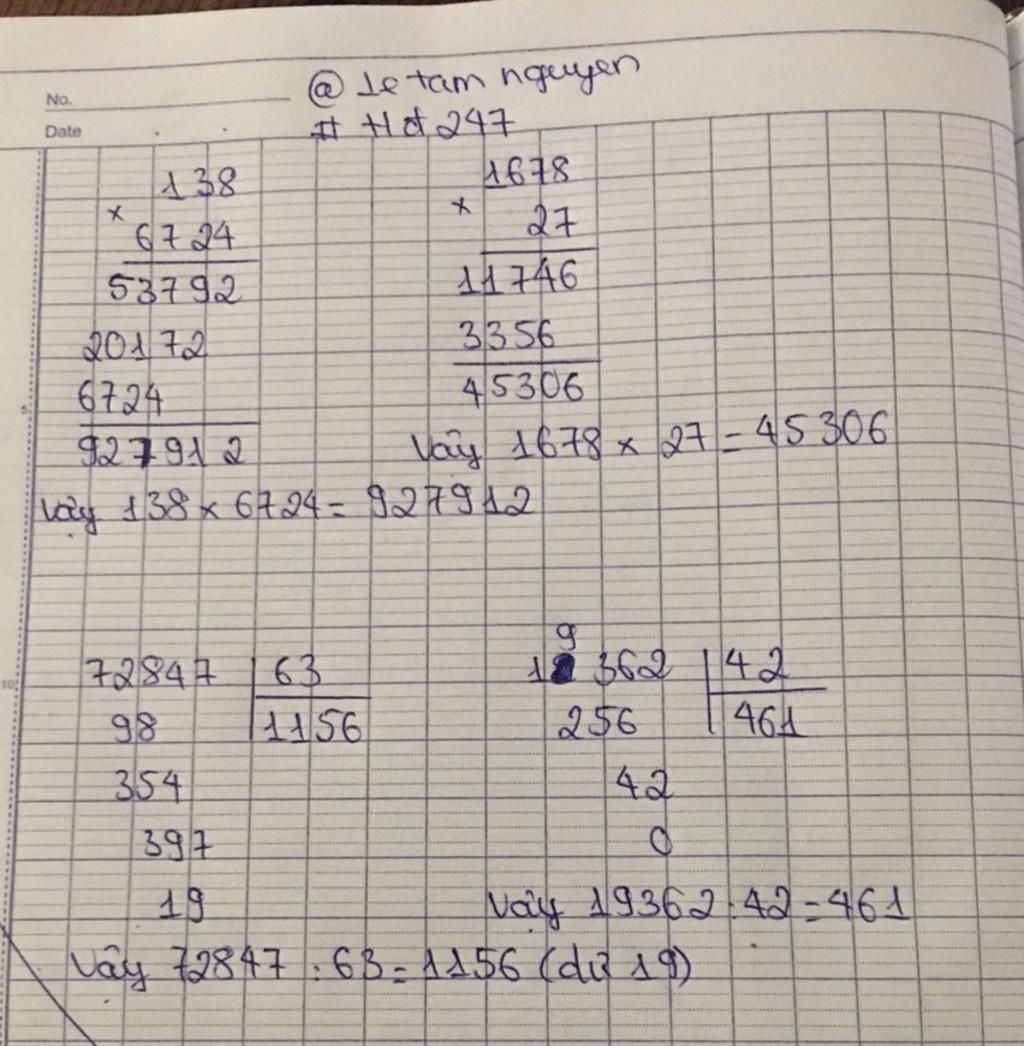 @ Le tam nguyen
No.
# Hđ 247
Date
138
×
6724
53792
20172
6724
927912
Vậy 138 × 6724 = 927912
1678
×
27
11746
3356
45306
Vậy 1678 × 27 = 45306
72847 63
98 1156
354
397
19
Vậy 72847 : 63 = 1156 (dư 19)
19362 42
256 461
42
0
Vậy 19362 : 42 = 461
5
10